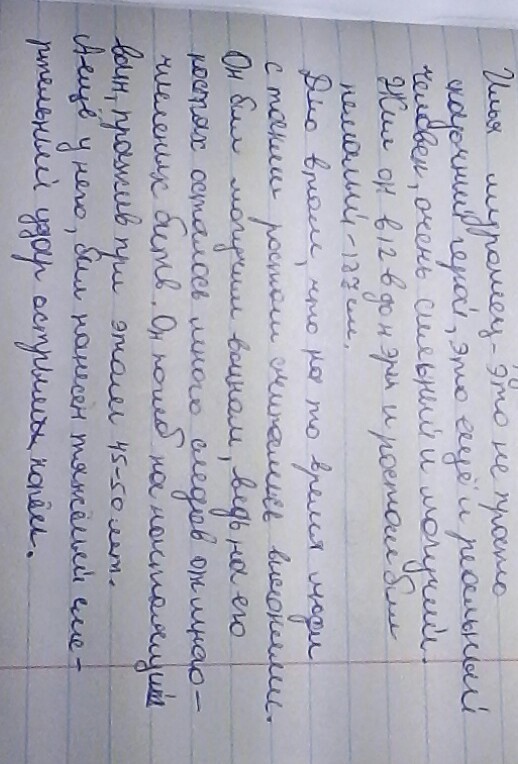 Илья муромец - это не просто
сказочный герой, это ещё и реальный
человек, очень сильный и могучий.
Жил он в 12 в до н эры и ростом был
немалый - 177 см.
Дио врали, что на то время люди
с таким ростом считались высокими.
Он был могучим воином, ведь на его
костях осталось много следов от мноо-
численик битв. Он погиб на настоящий
воин, прожив при этом 45-50 лет.
А ещё у него, был нанесен тяжёлый сме-
ртельный удар острым копьём.